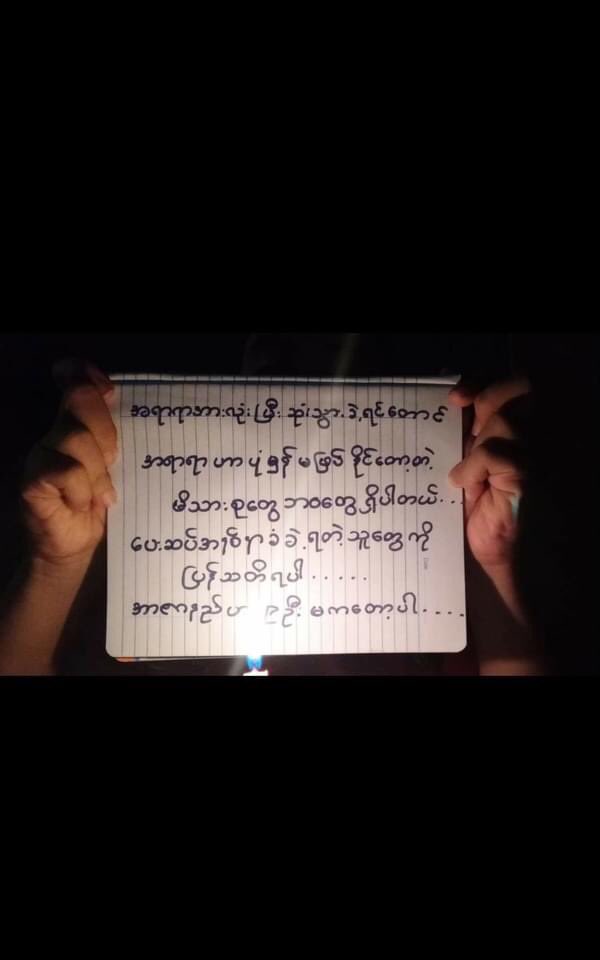 အရာရာအားလုံးပြီးဆုံးသွားခဲ့ရင်တောင်
အရာရာဟာပုံမှန်မဖြစ်နိုင်တော့တဲ့
မိသားစုတွေဘဝတွေရှိပါတယ်...
ပေးဆပ်အနစ်နာခံခဲ့ရတဲ့သူတွေကို
ပြန်သတိရပါ.....
အာဏာနည်ဟာ ဦး မကတော့ပါ....